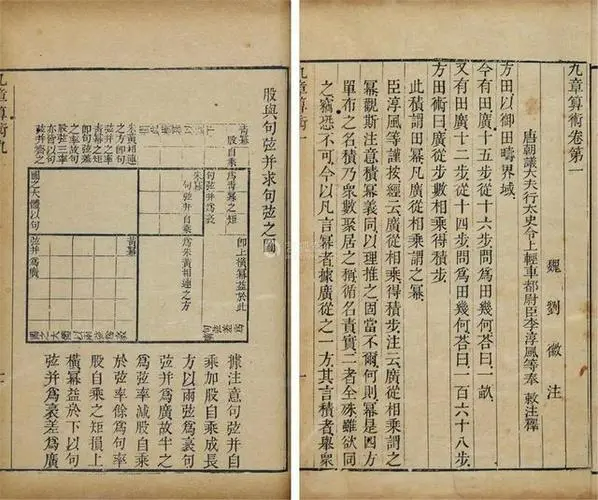 九章算術卷第一
魏 劉徽 注
唐朝議大夫行太史令上輕車都尉臣李淳風等奉 敕注釋
方田以御田疇界域
今有田廣十五步從十六步問爲田幾何荅曰一畝
又有田廣十二步從十四步問爲田幾何荅曰一百六十八步
方田術曰廣從步數相乘得積步
此積謂田冪凡廣從相乘謂之冪
臣淳風等謹按經云廣從相乘得積步注云廣從相乘謂之
冪觀斯注意積冪義同以理推之固當不爾何則冪是四方
單布之名積乃衆數聚居之稱循名責實二者全殊雖欲同
之竊恐不可今以凡言冪者據廣從之一方其言積者舉衆
九章算術一
股與句弦并求句弦之圖
股自乘爲青冪之矩
青冪
句弦并爲袤
句弦并自乘爲朱黃相連之方
朱冪
即上橫冪益於此
句弦差
黃冪
弦并爲廣
據注意句弦并自
乘加股自乘成長
方以兩弦爲袤句
弦并爲廣故半之
爲弦率減股自乘
於弦率餘爲句率
股自乘之矩損上
橫冪益於下以句
弦并爲袤差爲廣
九章算術九